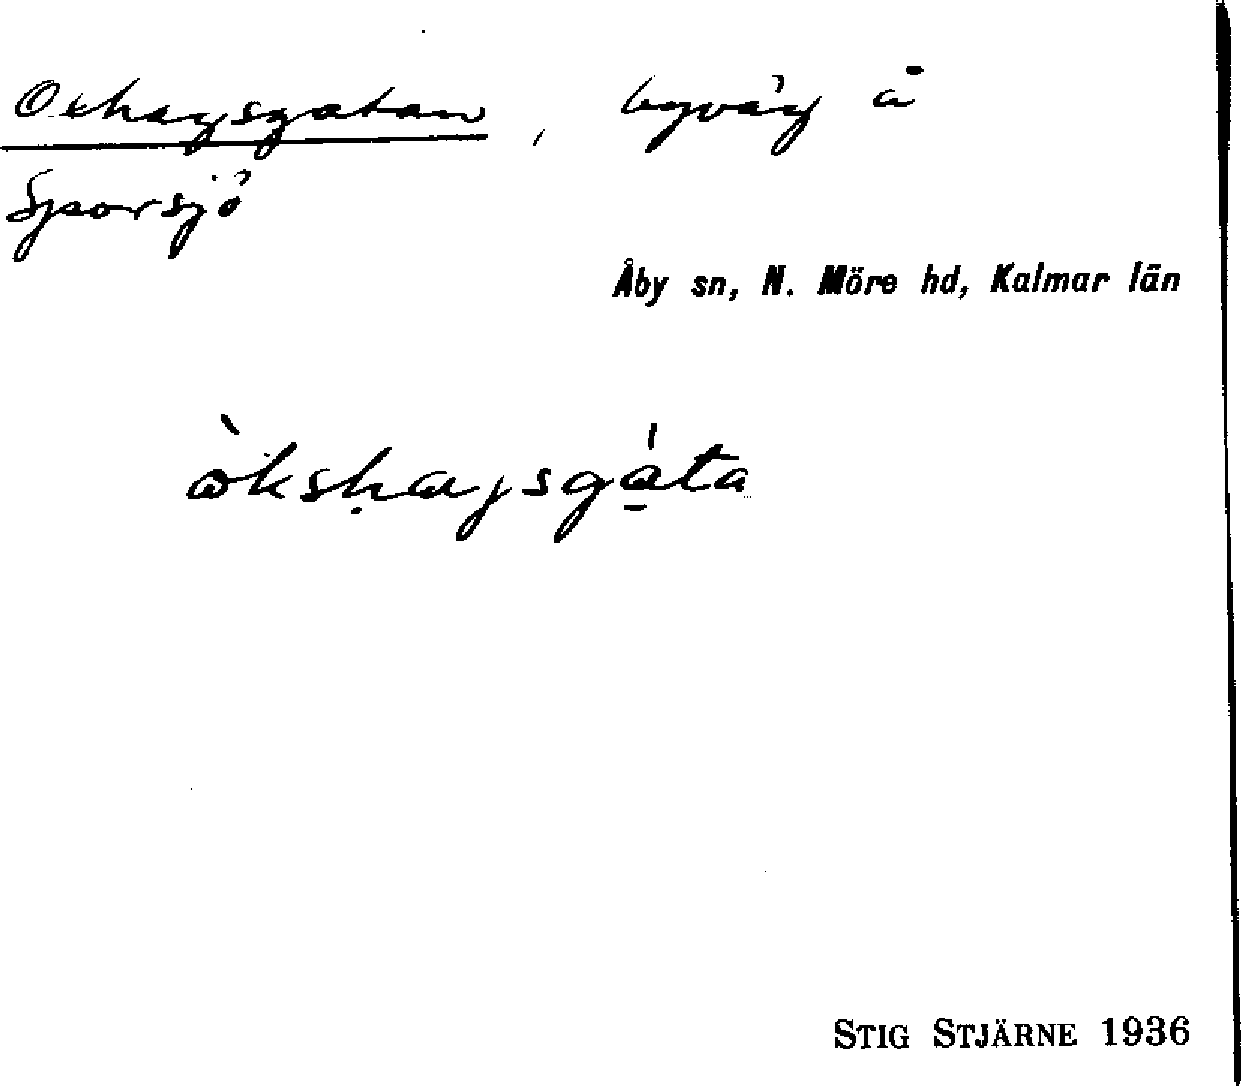 Oxhagsgatan, byväg å
Sporsjö
Åby sn, N. Möre hd, Kalmar län
òkshagsgáta
STIG STJÄRNE 1936